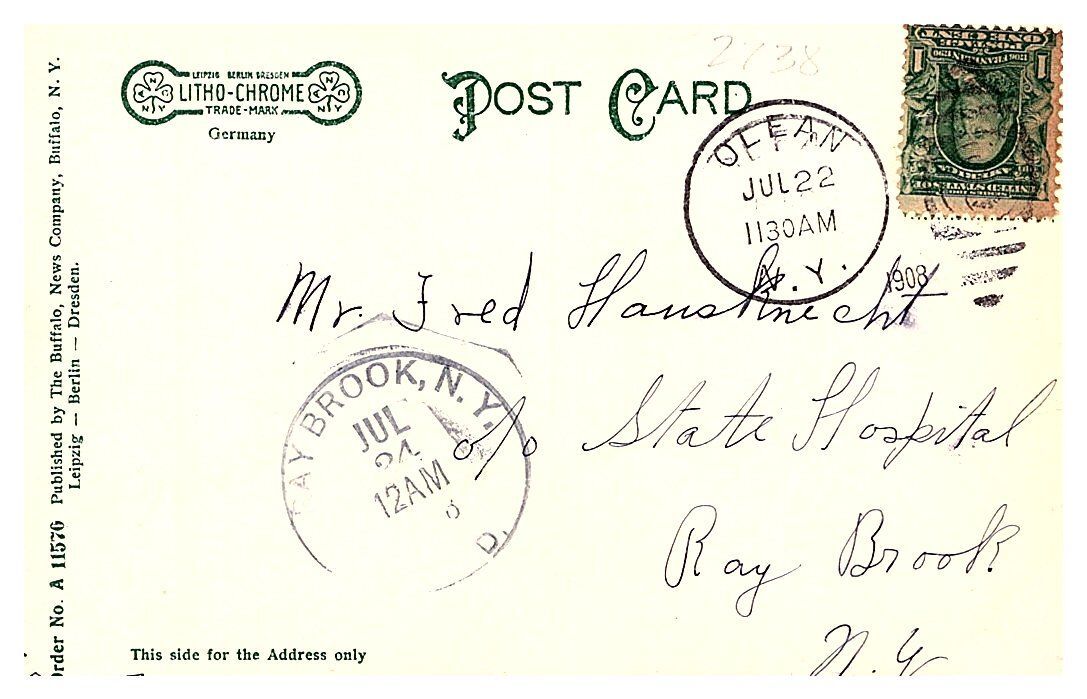 2738
LEIPZIG BERLIN DRESDEN
LITHO-CHROME
TRADE-MARK
N Y
N Y
Germany
POST CARD
OLEAN
JUL 22
1130AM
N.Y.
1908
1 1
Mr. Fred Hausknecht
c/o State Hospital
Ray Brook
N.Y
RAY BROOK, N.Y.
JUL
24
12AM
D.
This side for the Address only
Order No. A 11576 Published by The Buffalo, News Company, Buffalo, N. Y.
Leipzig — Berlin — Dresden.